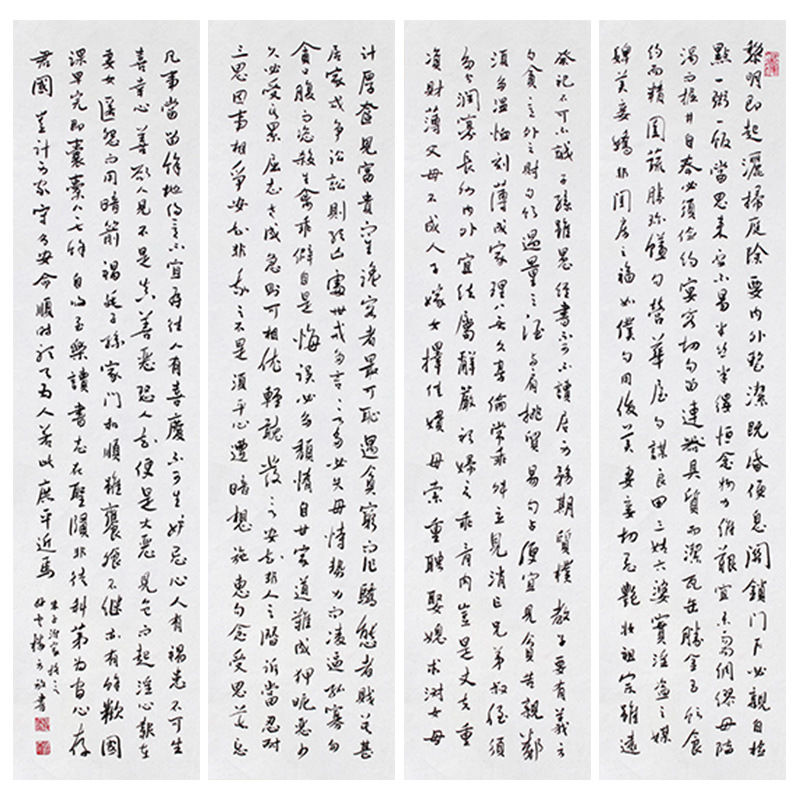 黎明即起灑掃庭除要內外整潔既昏便息關鎖門戶必親自檢
點一粥一飯當思來處不易半絲半縷恒念物力維艱宜未雨綢繆毋臨
渴而掘井自奉必須儉約宴客切勿留連器具質而潔瓦缶勝金玉飲食
約而精園蔬勝珍饈勿營華屋勿謀良田三姑六婆實淫盜之媒
婢美妾嬌非閨房之福奴僕勿用俊美妻妾切忌艷妝祖宗雖遠
祭祀不可不誠子孫雖愚經書不可不讀居身務期質樸教子要有義方
勿貪意外之財勿飲過量之酒與肩挑貿易勿占便宜見貧苦親鄰
須多溫恤刻薄成家理無久享倫常乖舛立見消亡兄弟叔侄須
分多潤寡長幼內外宜法屬辭嚴聽婦言乖骨肉豈是丈夫重
資財薄父母不成人子嫁女擇佳婿毋索重聘娶媳求淑女毋
計厚奩見富貴而生諂容者最可恥遇貧窮而作驕態者賤莫甚
居家戒爭訟訟則終凶處世戒多言言多必失毋恃勢力而凌逼孤寡勿
貪口腹而恣殺生禽乖僻自是悔誤必多頹惰自甘家道難成狎昵惡少
久必受其累屈志老成急則可相依輕聽發言安知非人之譖訴當忍耐
三思因事相爭安知非我之不是須平心遭暗想施惠勿念受恩莫忘
凡事當留餘地得意不宜再往人有喜慶不可生妒忌心人有禍患不可生
喜幸心善欲人見不是真善惡恐人知便是大惡見色而起淫心報在
妻女匿怨而用暗箭禍延子孫家門和順雖饔飧不繼亦有餘歡國
課早完即囊橐無餘自得至樂讀書志在聖賢非徒科第為官心存
君國豈計身家守分安命順時聽天為人若此庶乎近焉
朱子治家格言
書